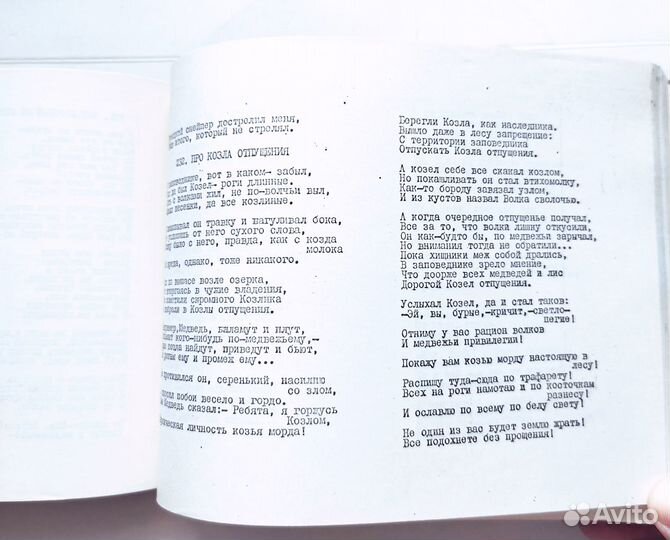 снайпер дострелил меня,
того, который не стрелял.
232. ПРО КОЗЛА ОТПУЩЕНИЯ
заповеднике, вот в каком- забыл,
был Козел- роги длинные.
с волками жил, не по-волчьи выл,
песенки, да все козлиные.
он травку и нагуливал бока,
услышишь от него сухого слова,
было с него, правда, как с козла
молока
вреда, однако, тоже никакого.
на выпасе возле озерка,
вторгаясь в чужие владения,
заметили скромного Козлика
избрали в Козлы отпущения.
Медведь, баламут и плут,
кого-нибудь по-медвежьему,-
козла найдут, приведут и бьют,
рогам ему и промеж ему...
противился он, серенький, насилию
со злом,
сносил побои весело и гордо.
Медведь сказал:- Ребята, я горжусь
Козлом,
личность козья морда!
Берегли Козла, как наследника.
Вышло даже в лесу запрещение:
С территории заповедника
Отпускать Козла отпущения.
А козел себе все скакал козлом,
Но пошаливать он стал втихомолку,
Как-то бороду завязал узлом,
И из кустов назвал Волка сволочью.
А когда очередное отпущенье получал,
Все за то, что волки лишку откусили,
Он как-будто бы, по медвежьи зарычал,
Но внимания тогда не обратили...
Пока хищники меж собой дрались,
В заповеднике зрело мнение,
Что дороже всех медведей и лис
Дорогой Козел отпущения.
Услыхал Козел, да и стал таков:
-Эй, вы, бурые,-кричит,-светло-
пегие!
Отниму у вас рацион волков
И медвежьи привилегии!
Покажу вам козью морду настоящую в
лесу!
Распишу туда-сюда по трафарету!
Всех на роги намотаю и по косточкам
разнесу!
И ославлю по всему по белу свету!
Не один из вас будет землю жрать!
Все подохнете без прощения!
Avito